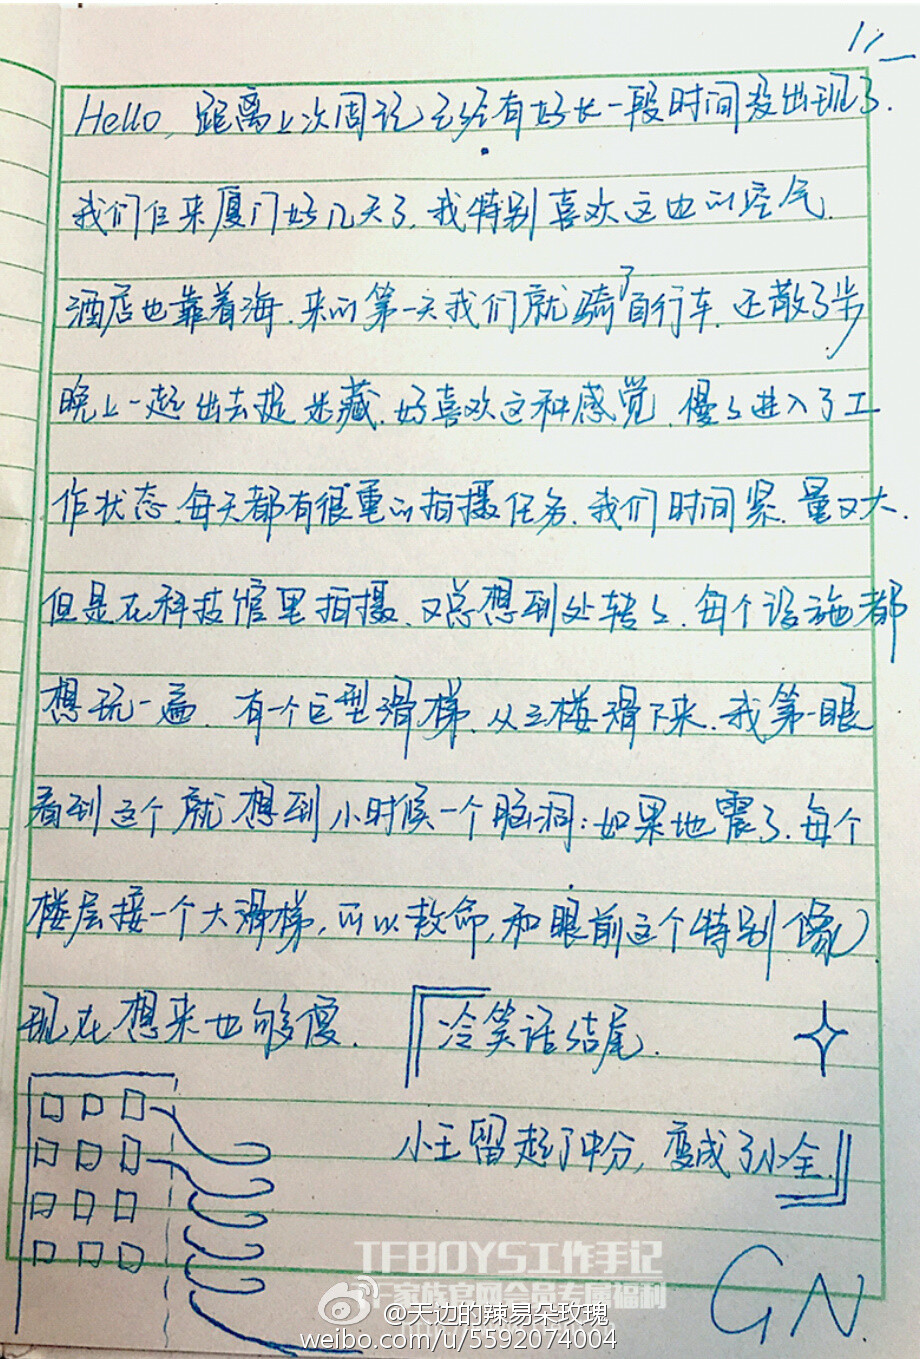 11
Hello, 距离上次周记已经有好长一段时间没出现了.
我们仨来厦门好几天了,我特别喜欢这边的空气.
酒店也靠着海.来的第一天我们就骑了自行车.还散了步
晚上一起出去捉迷藏.好喜欢这种感觉.慢々进入了工
作状态.每天都有很重的拍摄任务.我们时间紧.量又大.
但是在科技馆里拍摄.又总想到处转々.每个设施都
想玩一遍.有一个巨型滑梯.从三楼滑下来.我第一眼
看到这个就想到小时候一个脑洞:如果地震了.每个
楼层接一个大滑梯,可以救命,和眼前这个特别像
现在想来也够傻.
『冷笑话结尾.
小王留起了中分,变成了小全.』
GN.
TFBOYS工作手记
TF家族官网会员专属福利
@天边的辣易朵玫瑰
weibo.com/u/5592074004